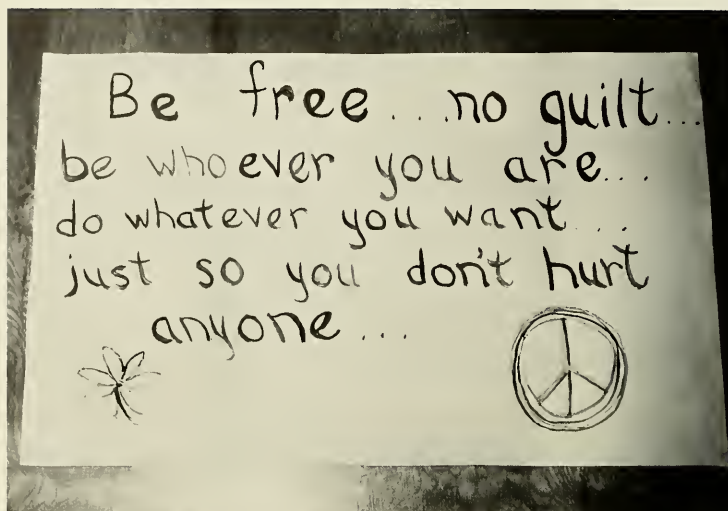 Be free... no guilt...
be whoever you are...
do whatever you want...
just so you don't hurt
anyone...